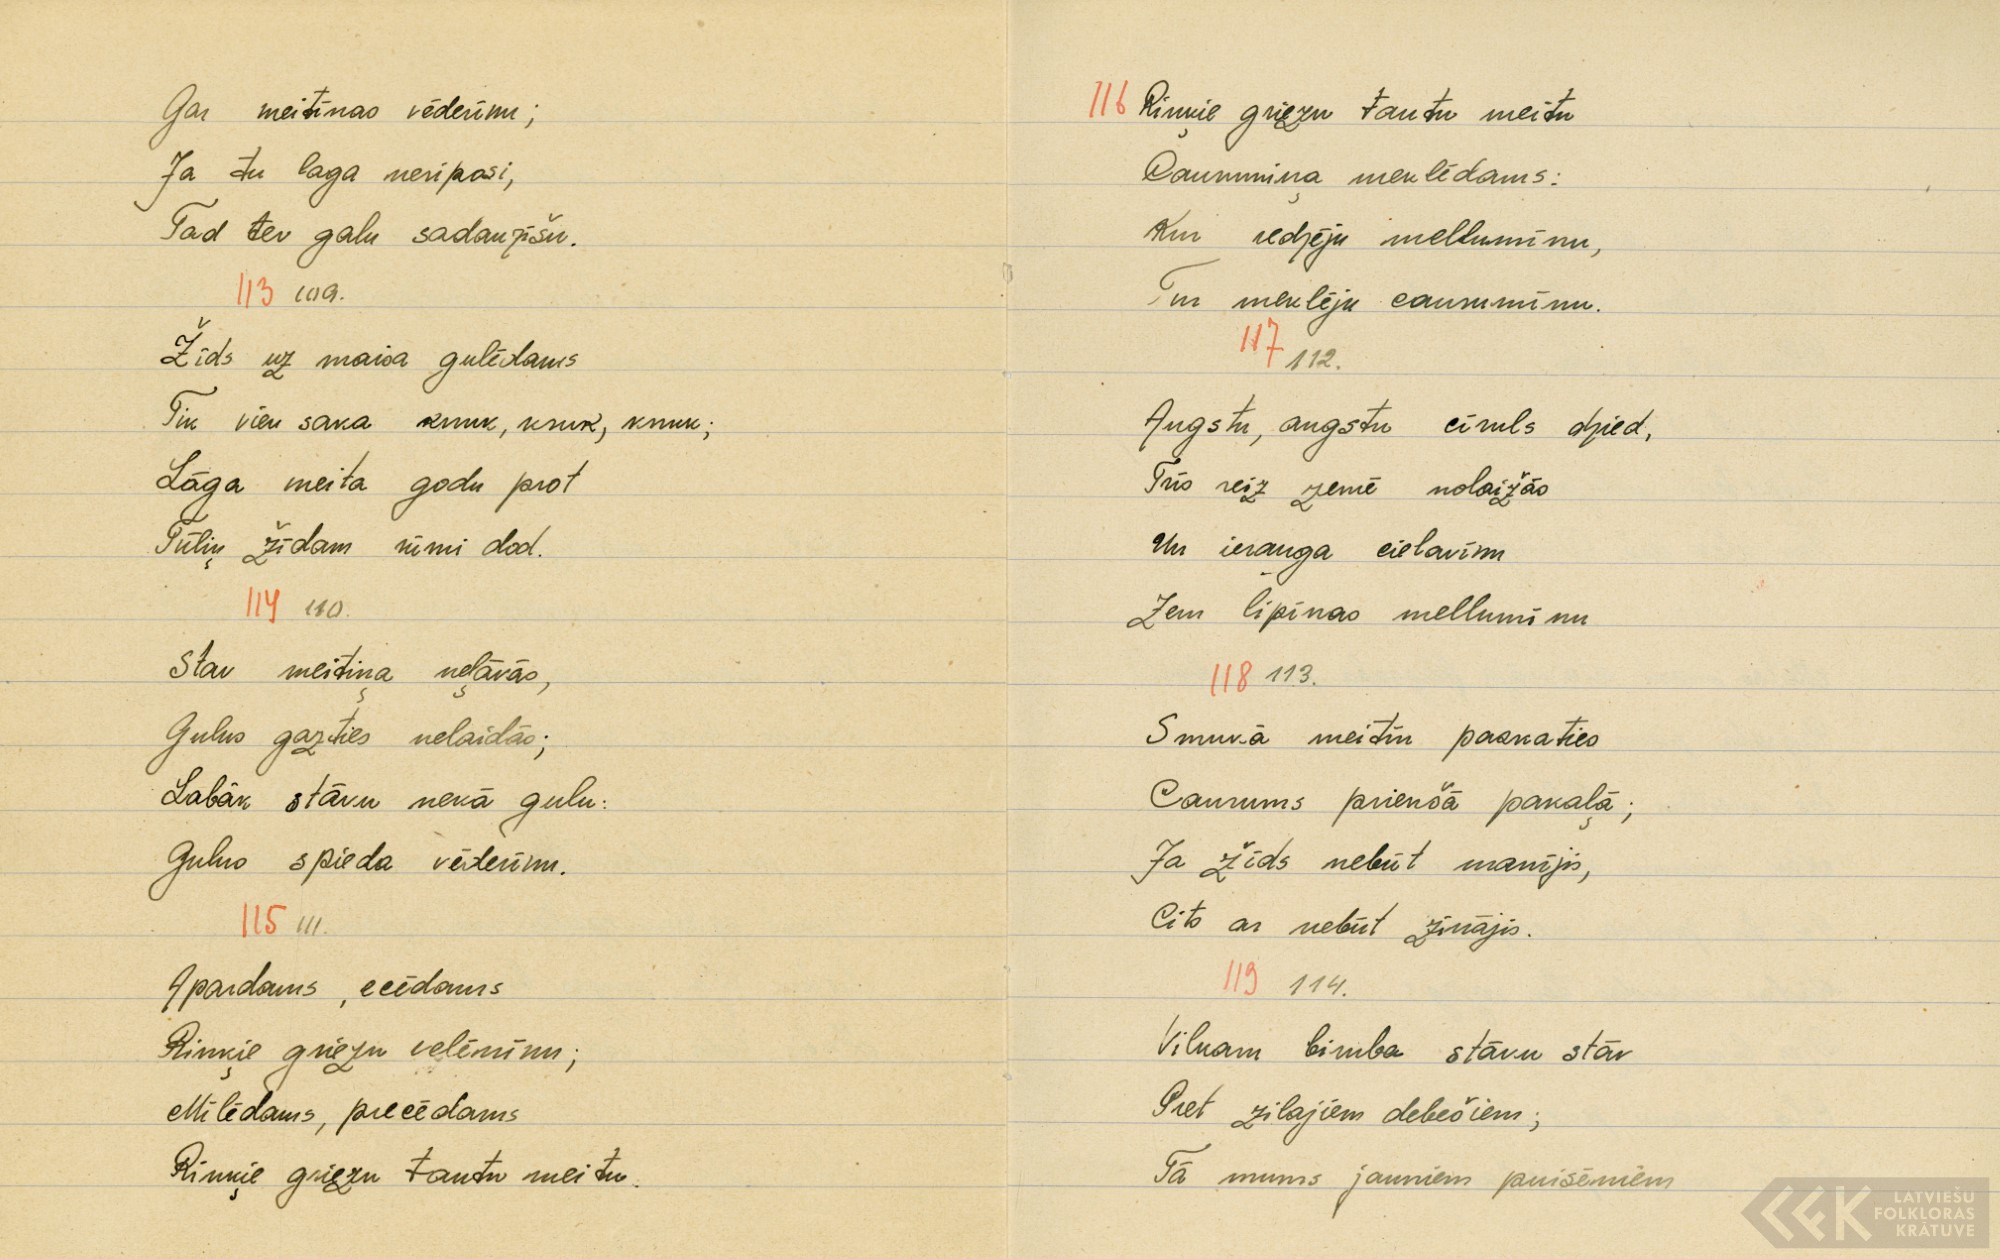 Gar meitiņas vēderiņu;
Ja tu laga neriposi,
Tad tev galu sadauzīšu.
113 109.
Žīds uz maisa gulēdams
Tik vien saka knuk, knuk, knuk;
Lāga meita godu prot
Tūliņ žīdam rūmi dod.
114 110.
Stav meitiņa neļāvās,
Gulus gazties nelaidās;
Labāk stāvu nekā gulu:
Gulus spieda vēderiņu.
115 111.
Apardams, ecēdams
Riņķie griezu velēniņu;
Mīlēdams, precēdams
Riņķie griezu tautu meitu.
116 Riņķie griezu tautu meitu
Caurumiņa meklēdams:
Kur redzēju mellumiņu,
Tur meklēju caurumiņu.
117 112.
Augstu, augstu cīruls dzied,
Trīs reiz zemē nolaižās
Un ierauga cielaviņu
Zem lipiņas mellumiņu
118 113.
Smukā meitiņ paskaties
Caurums priekšā pakaļā;
Ja žīds nebūt manījis,
Cits ar nebūt zinājis.
119 114.
Vilkam bimba stāvu stāv
Pret zilajiem debešiem;
Tā mums jauniem puišēniem
LATVIEŠU
FOLKLORAS
KRĀTUVE